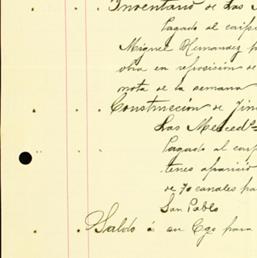 Inventario de Las
Pagado al carp
Miguel Hernandez p
obra en reposicion de
nota de la semana
Construccion de Fin
Las Merced
Pagado al carp
tenes aparicio
de 70 canales pa
San Pablo
Saldo á su Cgo para